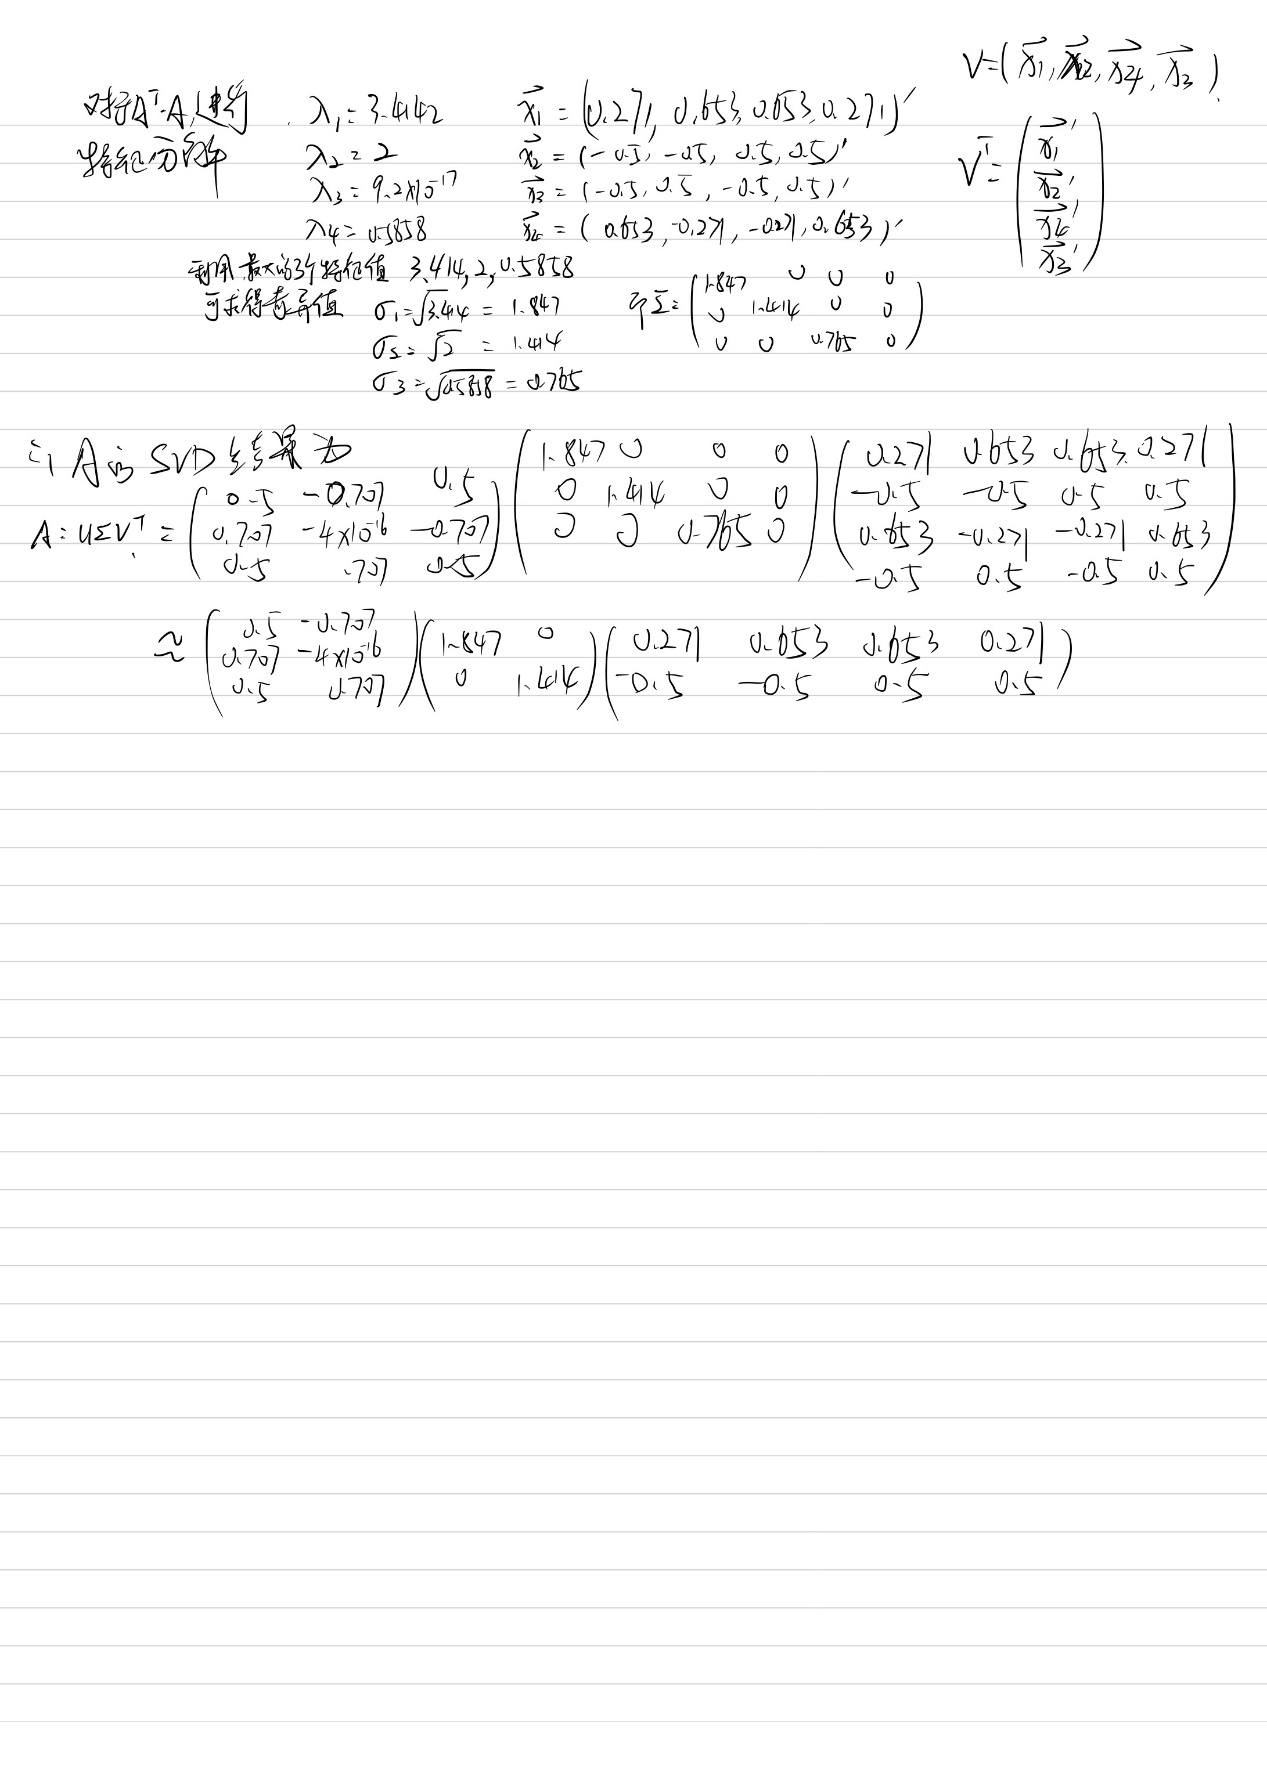 V=(x⃗1, x⃗2, x⃗4, x⃗3)
对于AᵀA进行 λ1=3.4142 x⃗1=(0.271, 0.653, 0.653, 0.271)′
特征分解 λ2=2 x⃗2=(-0.5, -0.5, 0.5, 0.5)′
λ3=9.2×10⁻¹⁷ x⃗3=(-0.5, 0.5, -0.5, 0.5)′
λ4=0.5858 x⃗4=(0.653, -0.271, -0.271, 0.653)′
Vᵀ=
x⃗1′
x⃗2′
x⃗4′
x⃗3′
利用最大的3个特征值 3.414, 2, 0.5858
可求得奇异值 σ1=√3.414=1.847
σ2=√2=1.414
σ3=√0.5858=0.765
即Σ=
1.847 0 0 0
0 1.414 0 0
0 0 0.765 0
∴A的SVD结果为
A=UΣVᵀ=
0.5 -0.707 0.5
0.707 -4×10⁻¹⁶ -0.707
0.5 .707 0.5
1.847 0 0 0
0 1.414 0 0
0 0 0.765 0
0.271 0.653 0.653 0.271
-0.5 -0.5 0.5 0.5
0.653 -0.271 -0.271 0.653
-0.5 0.5 -0.5 0.5
≈
0.5 -0.707
0.707 -4×10⁻¹⁶
0.5 0.707
1.847 0
0 1.414
0.271 0.653 0.653 0.271
-0.5 -0.5 0.5 0.5